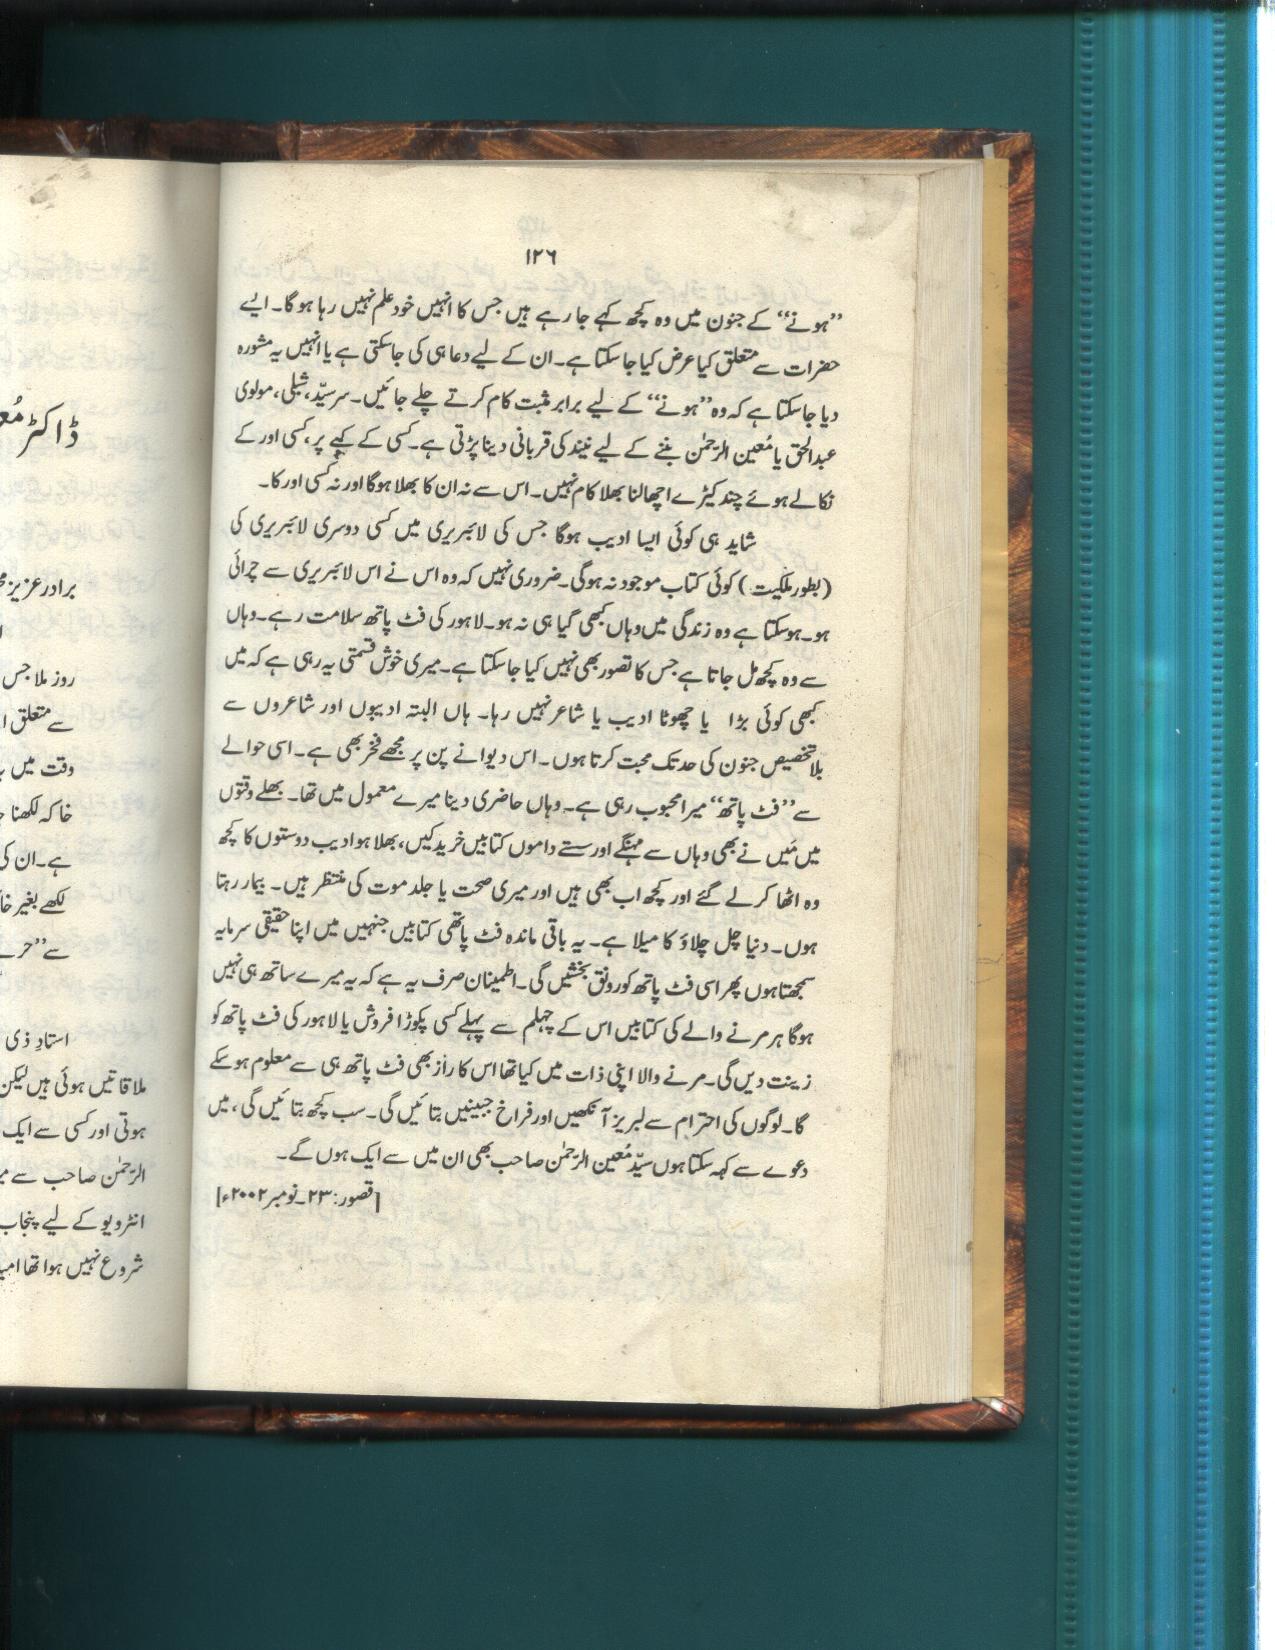 ۱۲۶
”ہونے“ کے جنون میں وہ کچھ کہے جا رہے ہیں جس کا انہیں خود علم نہیں رہا ہوگا۔ ایسے
حضرات سے متعلق کیا عرض کیا جا سکتا ہے۔ ان کے لیے دعا ہی کی جاسکتی ہے یا انہیں یہ مشورہ
دیا جاسکتا ہے کہ وہ ”ہونے“ کے لیے برابر مثبت کام کرتے چلے جائیں۔ سرسیّد، شبلی، مولوی
عبدالحق یا مُعین الرّحمٰن بننے کے لیے نیند کی قربانی دینا پڑتی ہے۔ کسی کے کہے پر، کسی اور کے
نکالے ہوئے چند کیڑے اچھالنا بھلا کام نہیں۔ اس سے نہ ان کا بھلا ہوگا اور نہ کسی اور کا۔
شاید ہی کوئی ایسا ادیب ہوگا جس کی لائبریری میں کسی دوسری لائبریری کی
(بطور ملکیت) کوئی کتاب موجود نہ ہوگی۔ ضروری نہیں کہ وہ اس نے اس لائبریری سے چرائی
ہو۔ ہوسکتا ہے وہ زندگی میں وہاں کبھی گیا ہی نہ ہو۔ لاہور کی فٹ پاتھ سلامت رہے۔ وہاں
سے وہ کچھ مل جاتا ہے جس کا تصور بھی نہیں کیا جا سکتا ہے۔ میری خوش قسمتی یہ رہی ہے کہ میں
کبھی کوئی بڑا یا چھوٹا ادیب یا شاعر نہیں رہا۔ ہاں البتہ ادیبوں اور شاعروں سے
بلا تخصیص جنون کی حد تک محبت کرتا ہوں۔ اس دیوانے پن پر مجھے فخر بھی ہے۔ اسی حوالے
سے ”فٹ پاتھ“ میرا محبوب رہی ہے۔ وہاں حاضری دینا میرے معمول میں تھا۔ بھلے وقتوں
میں مَیں نے بھی وہاں سے مہنگے اور سستے داموں کتابیں خرید کیں، بھلا ہو ادیب دوستوں کا کچھ
وہ اٹھا کر لے گئے اور کچھ اب بھی ہیں اور میری صحت یا جلد موت کی منتظر ہیں۔ بیمار رہتا
ہوں۔ دنیا چل چلاؤ کا میلا ہے۔ یہ باقی ماندہ فٹ پاتھی کتابیں جنہیں میں اپنا حقیقی سرمایہ
سمجھتا ہوں پھر اسی فٹ پاتھ کو رونق بخشیں گی۔ اطمینان صرف یہ ہے کہ یہ میرے ساتھ ہی نہیں
ہوگا ہر مرنے والے کی کتابیں اس کے چہلم سے پہلے کسی پکوڑا فروش یا لاہور کی فٹ پاتھ کو
زینت دیں گی۔ مرنے والا اپنی ذات میں کیا تھا اس کا راز بھی فٹ پاتھ ہی سے معلوم ہو سکے
گا۔ لوگوں کی احترام سے لبریز آنکھیں اور فراخ جبینیں بتائیں گی۔ سب کچھ بتائیں گی، میں
دعوے سے کہہ سکتا ہوں سیّد مُعین الرّحمٰن صاحب بھی ان میں سے ایک ہوں گے۔
[قصور: ۲۳۔ نومبر ۲۰۰۲ء]
ڈاکٹر
برادر عزیز
روز ملا جس
سے متعلق
وقت میں
خاکہ لکھنا
ہے۔ ان کی
لکھے بغیر
سے
استاد ذی
ملاقاتیں ہوئی ہیں لیکن
ہوتی اور کسی سے ایک
الرّحمٰن صاحب سے
انٹرویو کے لیے پنجاب
شروع نہیں ہوا تھا